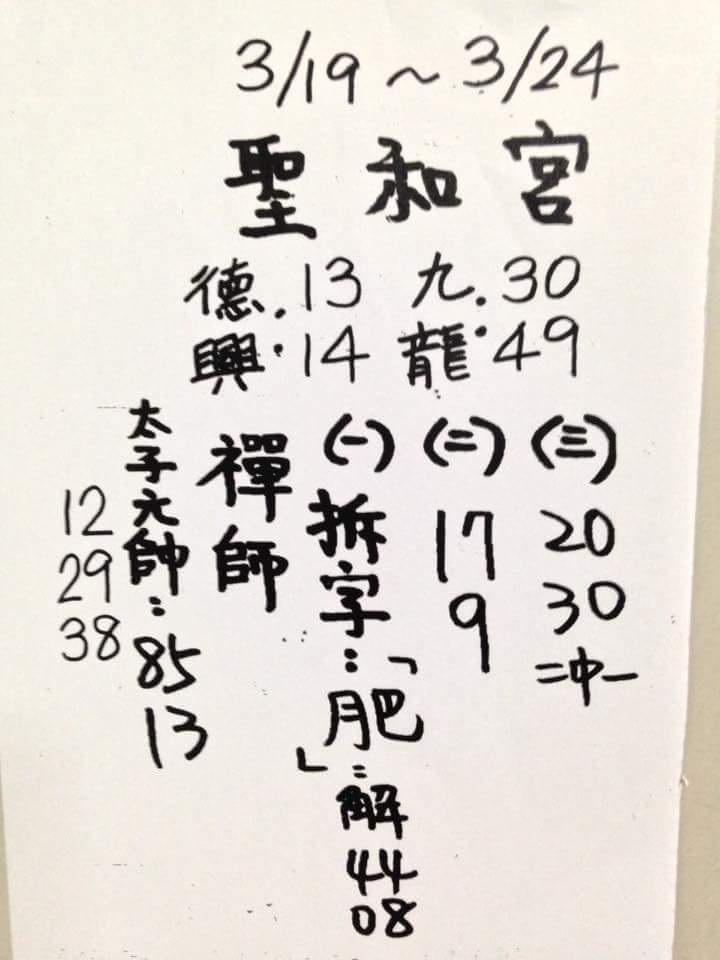 3/19～3/24
聖和宮
德興：13 14
九龍：30 49
(一) 拆字：「肥」：解 44 08
(二) 17 9
(三) 20 30 二中一
禪師
太子元帥：85 13
12 29 38